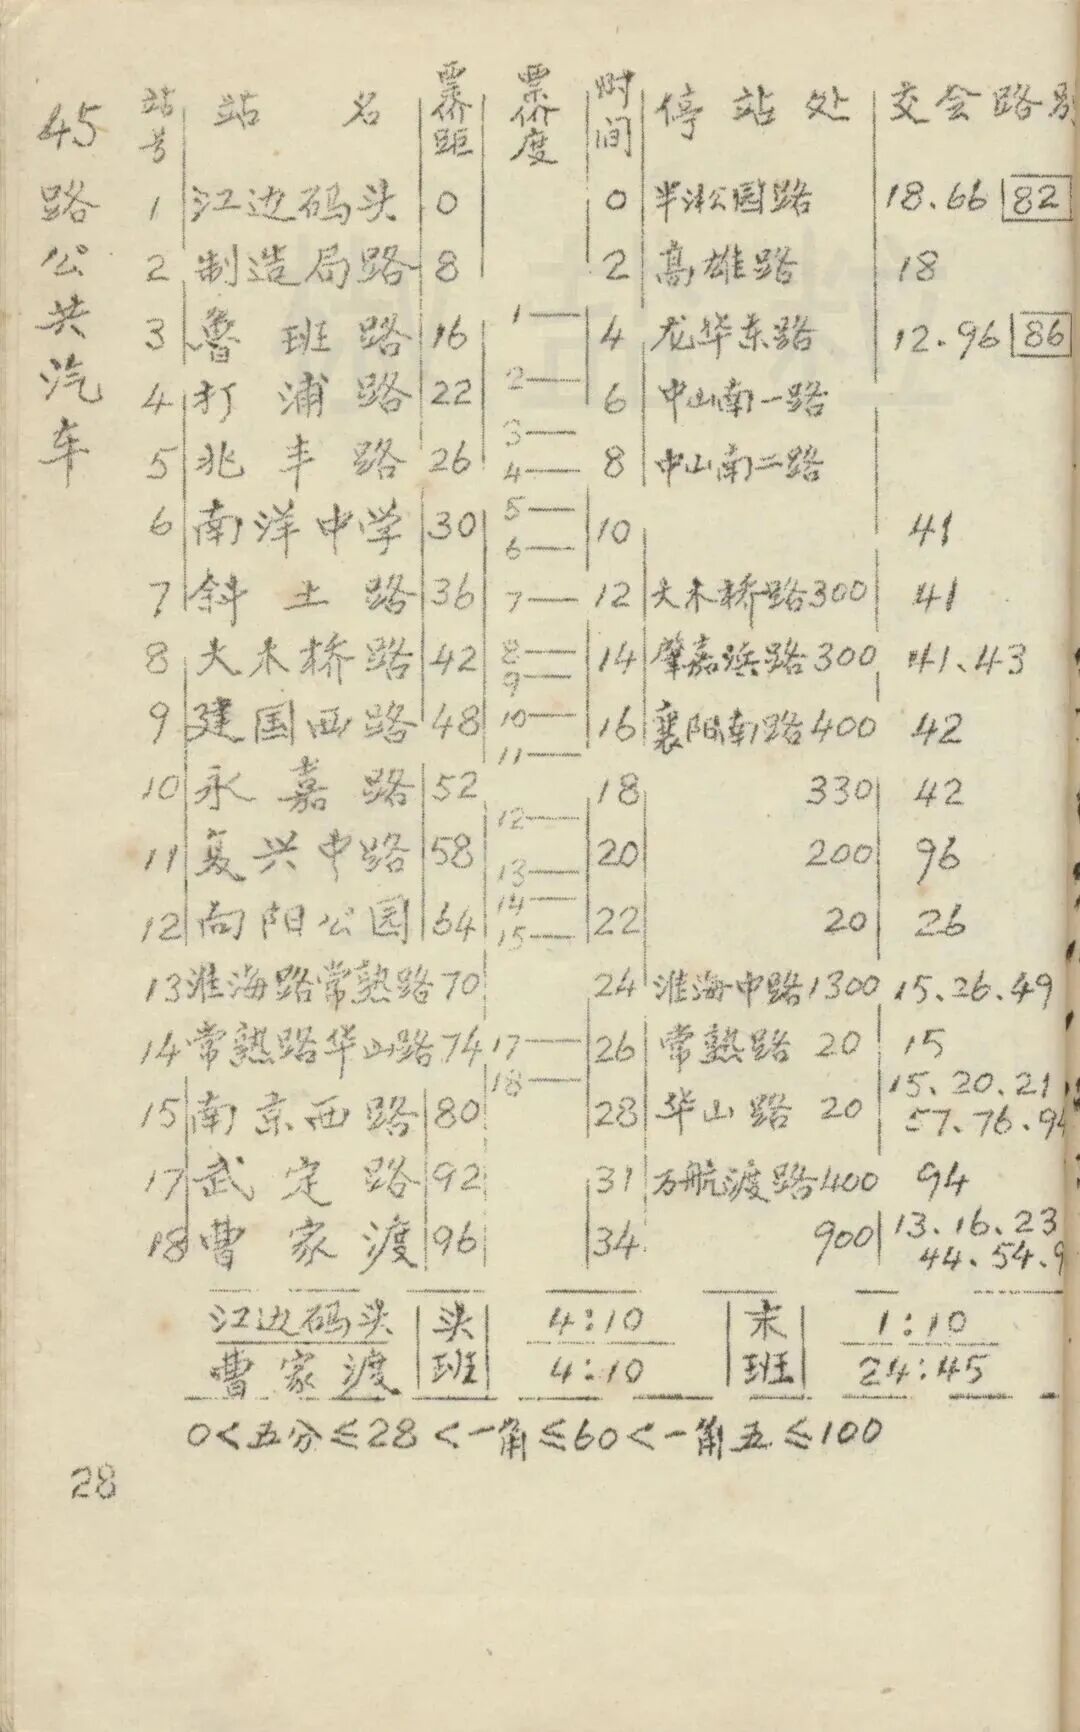 45路公共汽车
站号 站名 票价距 票价度 时间 停站处 交会路别
1 江边码头 0 0 半淞园路 18.66 82
2 制造局路 8 2 高雄路 18
1—
3 鲁班路 16 4 龙华东路 12.96 86
2—
4 打浦路 22 6 中山南一路
3—
5 兆丰路 26 4— 8 中山南二路
5—
6 南洋中学 30 10 41
6—
7 斜土路 36 7— 12 大木桥路300 41
8 大木桥路 42 8— 14 肇嘉浜路300 41.43
9—
9 建国西路 48 10— 16 襄阳南路400 42
11—
10 永嘉路 52 18 330 42
12—
11 复兴中路 58 20 200 96
13—
14—
12 向阳公园 64 22 20 26
15—
13 淮海路常熟路 70 24 淮海中路1300 15.26.49
14 常熟路华山路 74 17— 26 常熟路 20 15
18—
15 南京西路 80 28 华山路 20 15.20.21
57.76.94
17 武定路 92 31 万航渡路400 94
18 曹家渡 96 34 900 13.16.23
44.54.9
江边码头 头班 4:10 末班 1:10
曹家渡 4:10 24:45
0<五分≤28<一角≤60<一角五≤100
28